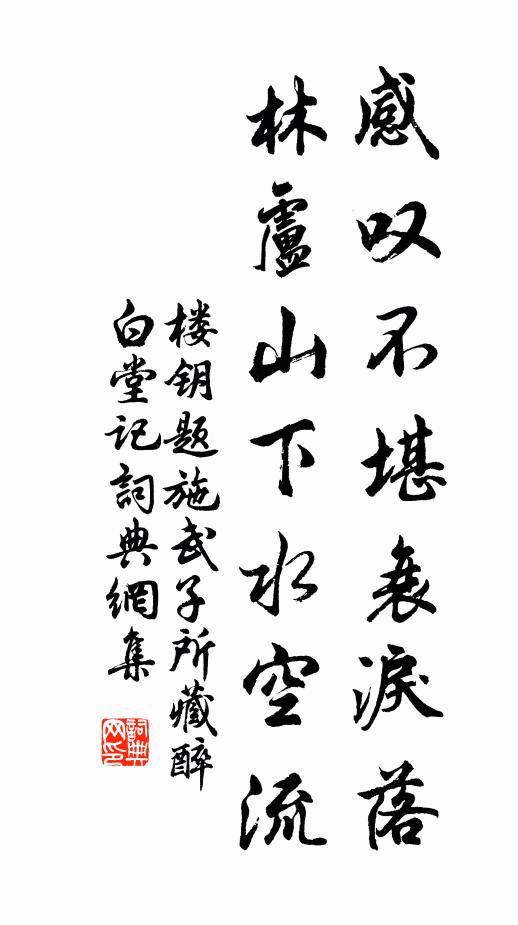 感叹不堪衰淚落
林廬山下水空流
楼钥题施武子所藏醉
白堂记詞典網集
詞典
网印